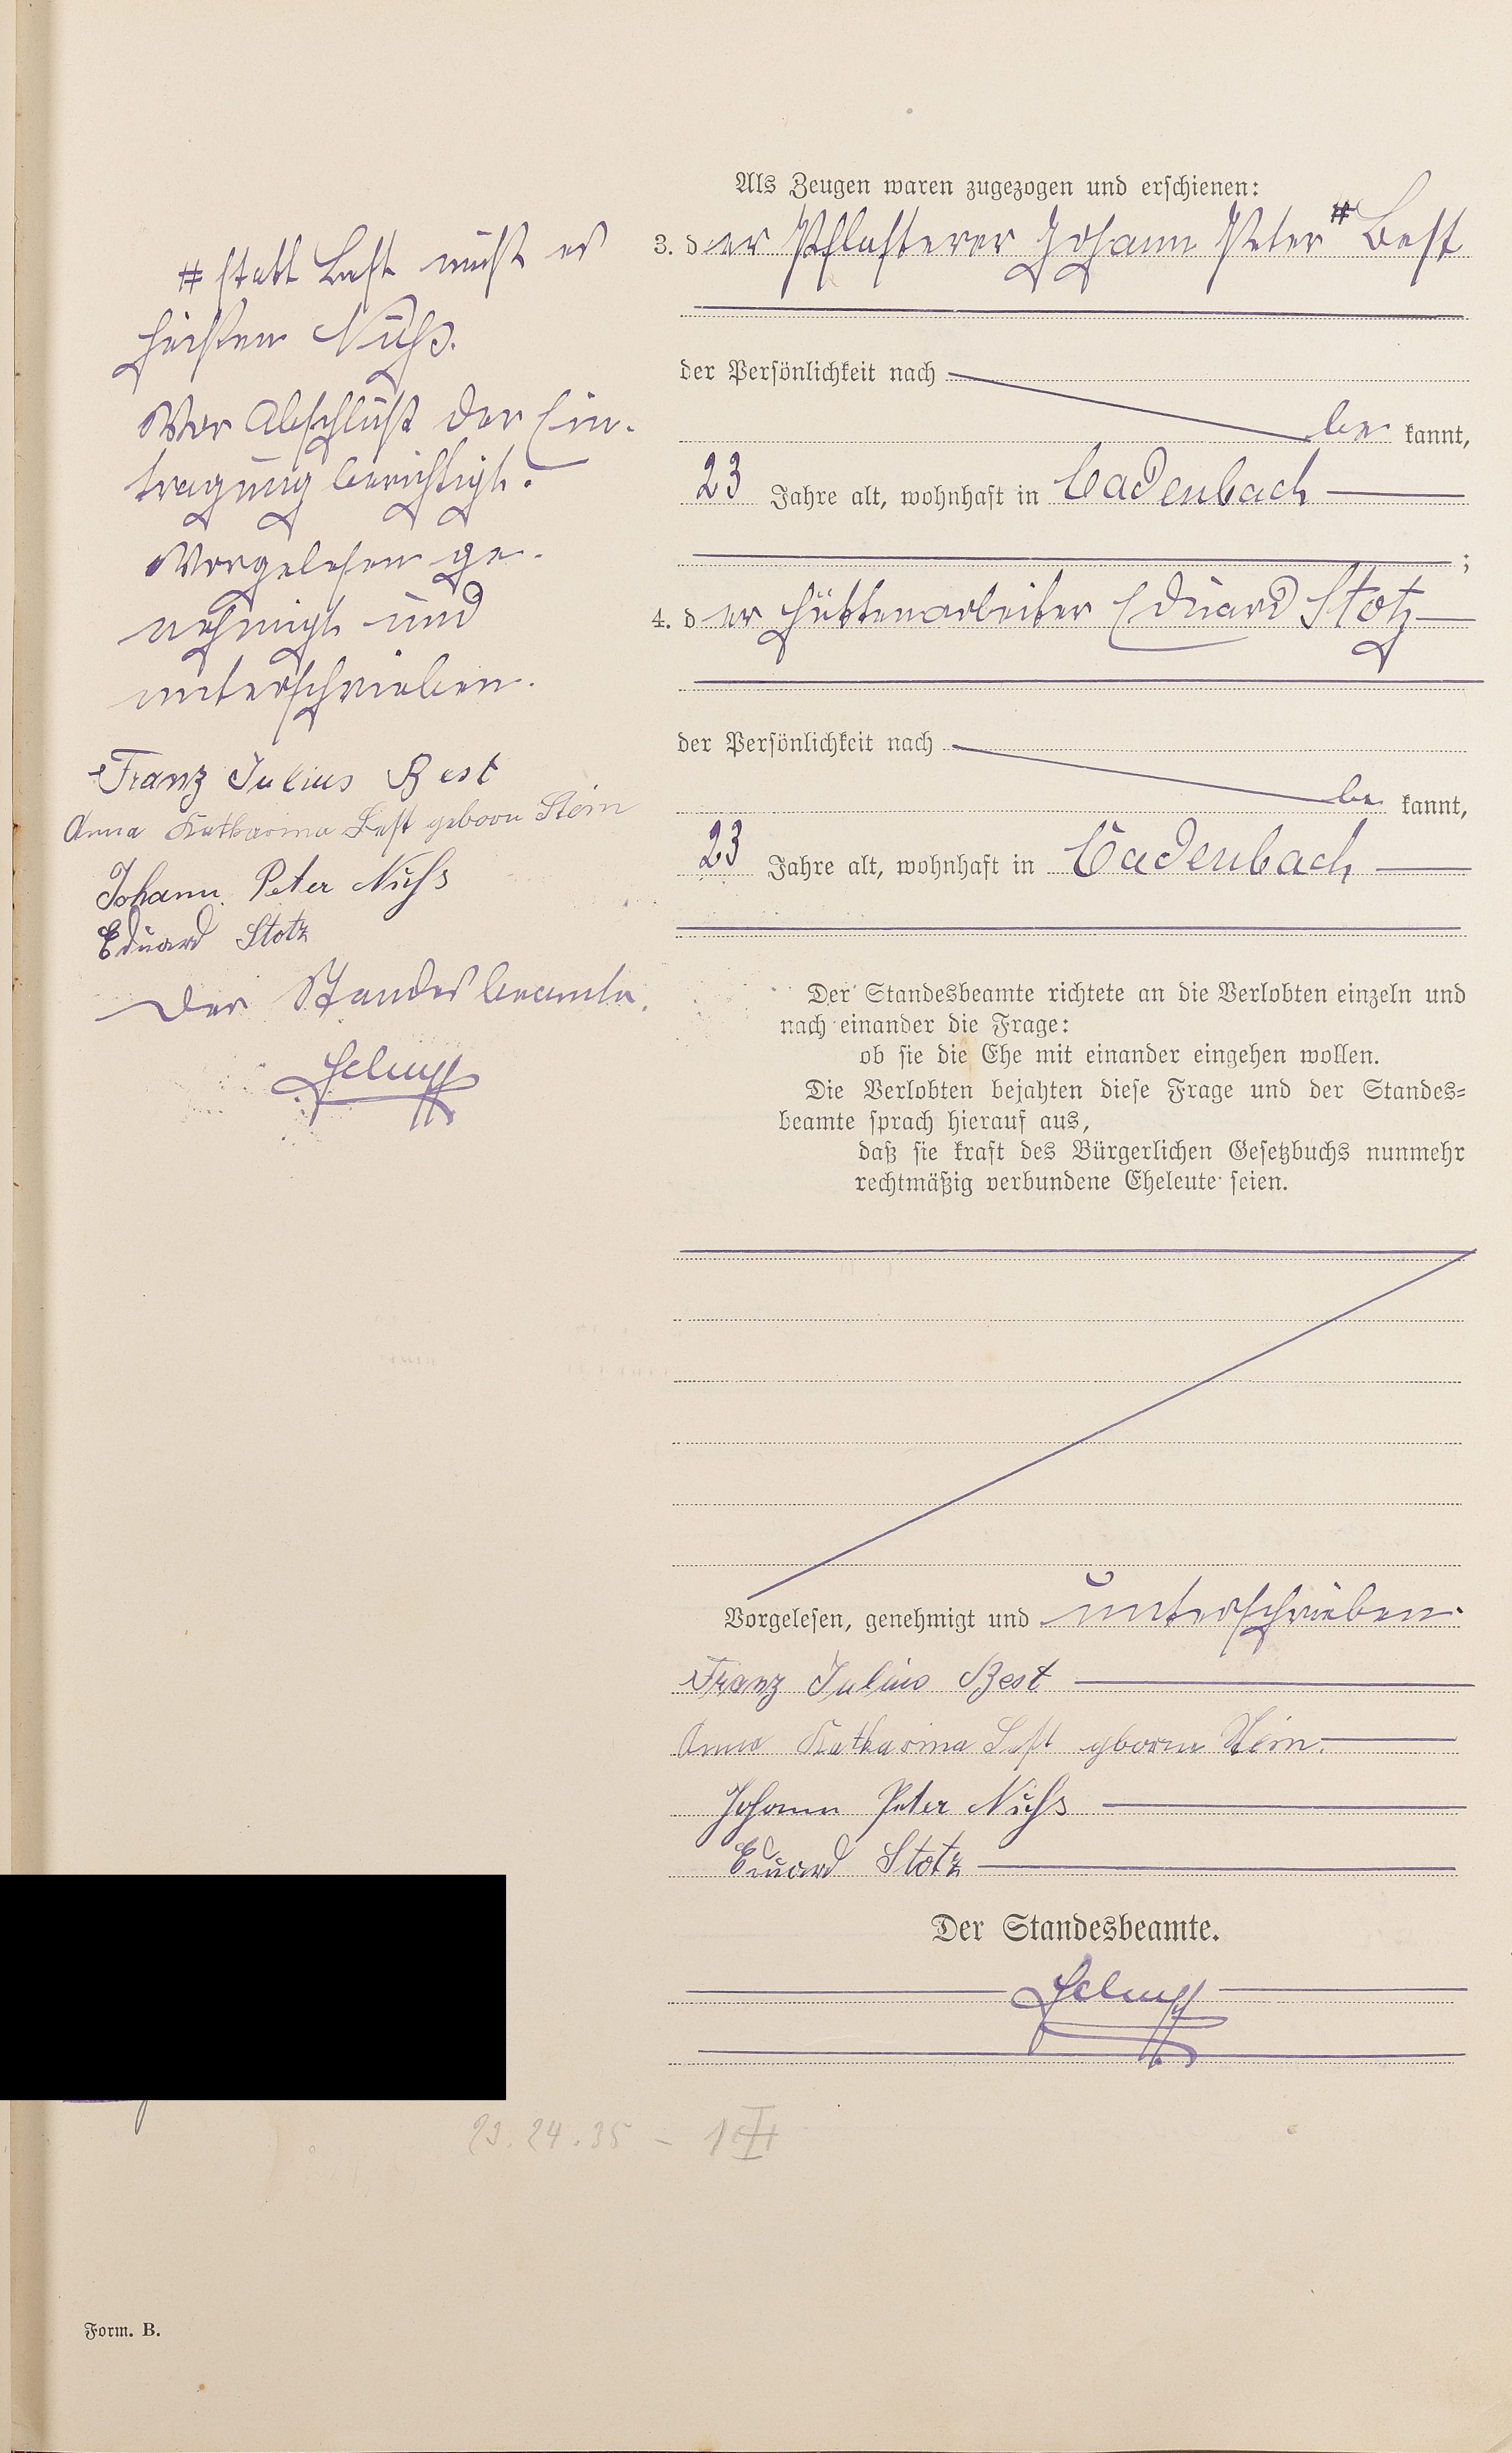 # statt Best muß es
heißen Nuß.
Vor Abschluß der Ein-
tragung berichtigt.
Vorgelesen ge-
nehmigt und
unterschrieben.
Franz Julius Best
Anna Katharina Best geborn Stein
Johann Peter Nuß
Eduard Stotz
Der Standesbeamte.
Als Zeugen waren zugezogen und erschienen:
3. der Pflasterer Johann Peter # Best
der Persönlichkeit nach
be kannt,
23 Jahre alt, wohnhaft in Cadenbach
;
4. der Hüttenarbeiter Eduard Stotz
der Persönlichkeit nach
be kannt,
23 Jahre alt, wohnhaft in Cadenbach
Der Standesbeamte richtete an die Verlobten einzeln und
nach einander die Frage:
ob sie die Ehe mit einander eingehen wollen.
Die Verlobten bejahten diese Frage und der Standes=
beamte sprach hierauf aus,
daß sie kraft des Bürgerlichen Gesetzbuchs nunmehr
rechtmäßig verbundene Eheleute seien.
Vorgelesen, genehmigt und unterschrieben.
Franz Julius Best
Anna Katharina Best geborne Stein.
Johann Peter Nuß
Eduard Stotz
Der Standesbeamte.
23.24.35 -
Form. B.